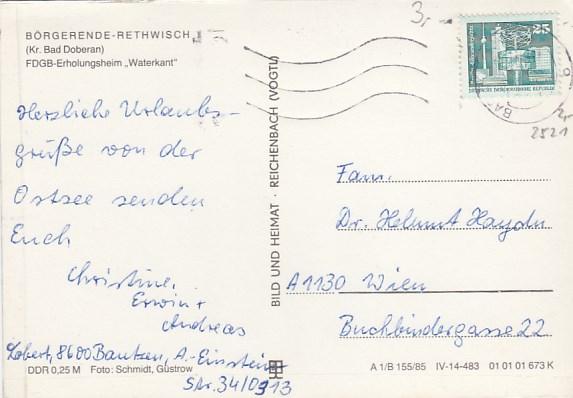 BÖRGERENDE-RETHWISCH
(Kr. Bad Doberan)
FDGB-Erholungsheim „Waterkant"
Herzliche Urlaubs-
grüße von der
Ostsee senden
Euch
Christine,
Erwin +
Andreas
Lobert, 8600 Bautzen, A.-Einstein
Str. 34/0913
DDR 0,25 M Foto: Schmidt, Güstrow
BILD UND HEIMAT · REICHENBACH (VOGTL)
3,-
25
DEUTSCHE DEMOKRATISCHE REPUBLIK
BA
2521
Fam.
Dr. Helmut Haydn
A 1130 Wien
Buchbindergasse 22
A 1/B 155/85 IV-14-483 01 01 01 673 K